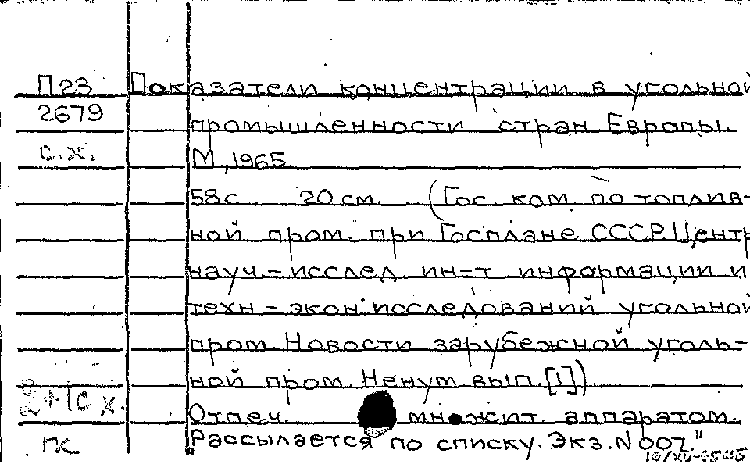 П23 Показатели концентрации в угольной
2679 промышленности стран Европы.
с.х. М., 1965
58с. 20 см. (Гос. ком. по топлив-
ной пром. при Госплане СССР. Центр.
науч.-исслед. ин-т информации и
техн.-экон. исследований угольной
пром. Новости зарубежной уголь-
ной пром. Ненум. вып. [1])
2+1с х. Отпеч. множит. аппаратом.
пс Рассылается по списку. Экз. N 007"